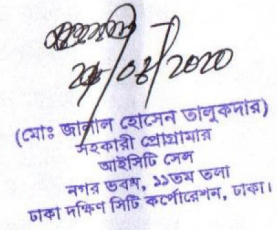 ২৫/০৪/২০২০
(মোঃ জালাল হোসেন তালুকদার)
সহকারী প্রোগ্রামার
আইসিটি সেল
নগর ভবন, ১১তম তলা
ঢাকা দক্ষিণ সিটি কর্পোরেশন, ঢাকা।